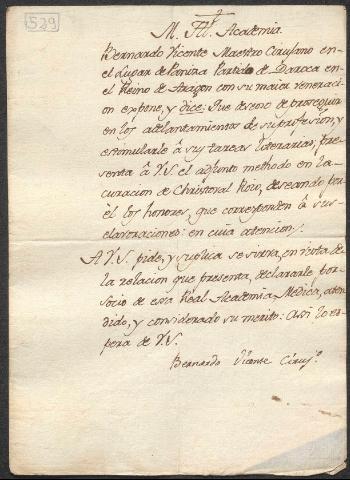 529
M. Iltr. Academia.
Bernardo Vicente Maestro Cirujano en
el Lugar de Paniza Partido de Daroca en
el Reino de Aragon con su maior veneracion
expone, y dice: Que deseoso de proseguir
en los adelantamientos de su profesion, y
estimularle â sus tareas literarias, pre
senta â V.S. el adjunto methodo en la
curacion de Christoval Roio, deseando por
èl los honores, que corresponden â sus
elavoraciones: en cuia atencion,
A V.S. pide, y suplica se sirva, en vista de
la relacion que presenta, declararle por
socio de essa Real Academia Medica, aten
dido, y considerado su merito: Assi lo es
pera de V.S.
Bernardo Vicente Ciruj.º